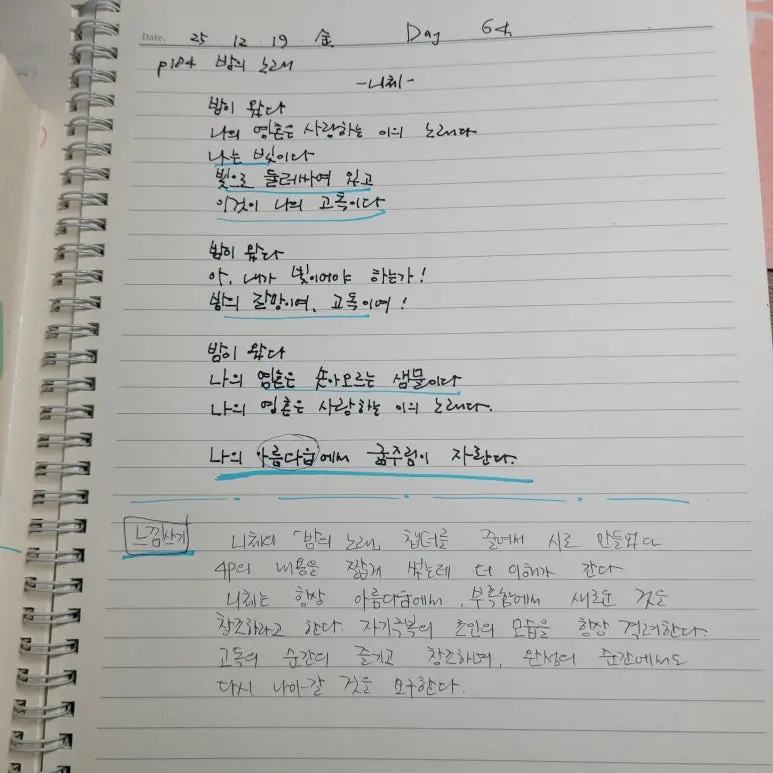 Date. 25 . 12 . 19 . 金 Day 64
p184 밤의 노래
-니체-
밤이 왔다
나의 영혼은 사랑하는 이의 노래다
나는 빛이다
빛으로 둘러싸여 있고
이것이 나의 고독이다
밤이 왔다
아, 내가 빛이어야 하는가!
밤의 갈망이여, 고독이여!
밤이 왔다
나의 영혼은 솟아오르는 샘물이다
나의 영혼은 사랑하는 이의 노래다.
나의 아름다움에서 굶주림이 자란다.
느낌쓰기 니체의 「밤의 노래」 챕터를 줄여서 시로 만들었다
4p의 내용을 짧게 썼는데 더 이해가 간다.
니체는 항상 아름다움에서, 부족함에서 새로운 것을
창조하라고 한다. 자기극복의 초인의 모습을 항상 격려한다.
고독의 순간의 즐기고 창조하며, 완성의 순간에서도
다시 나아갈 것을 요구한다.